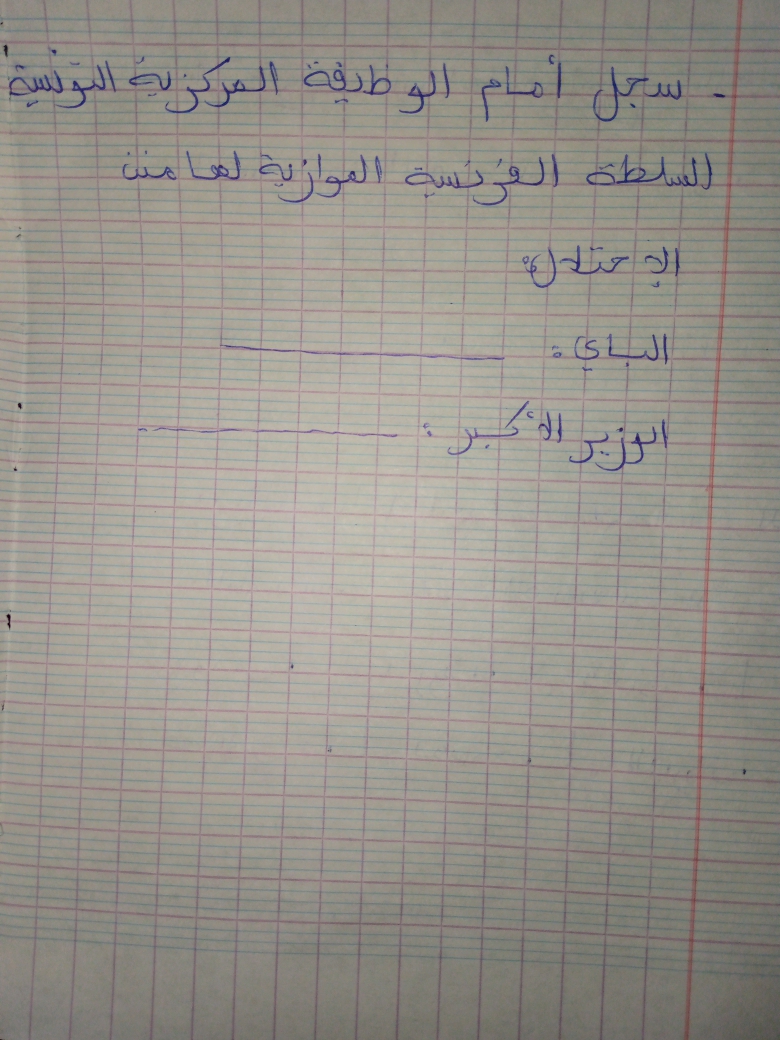 - سجل أمام الوظيفة المركزية التونسية
السلطة الفرنسية الموازية لها منذ
الإحتلال:
الباي: ____________
الوزير الأكبر: ____________